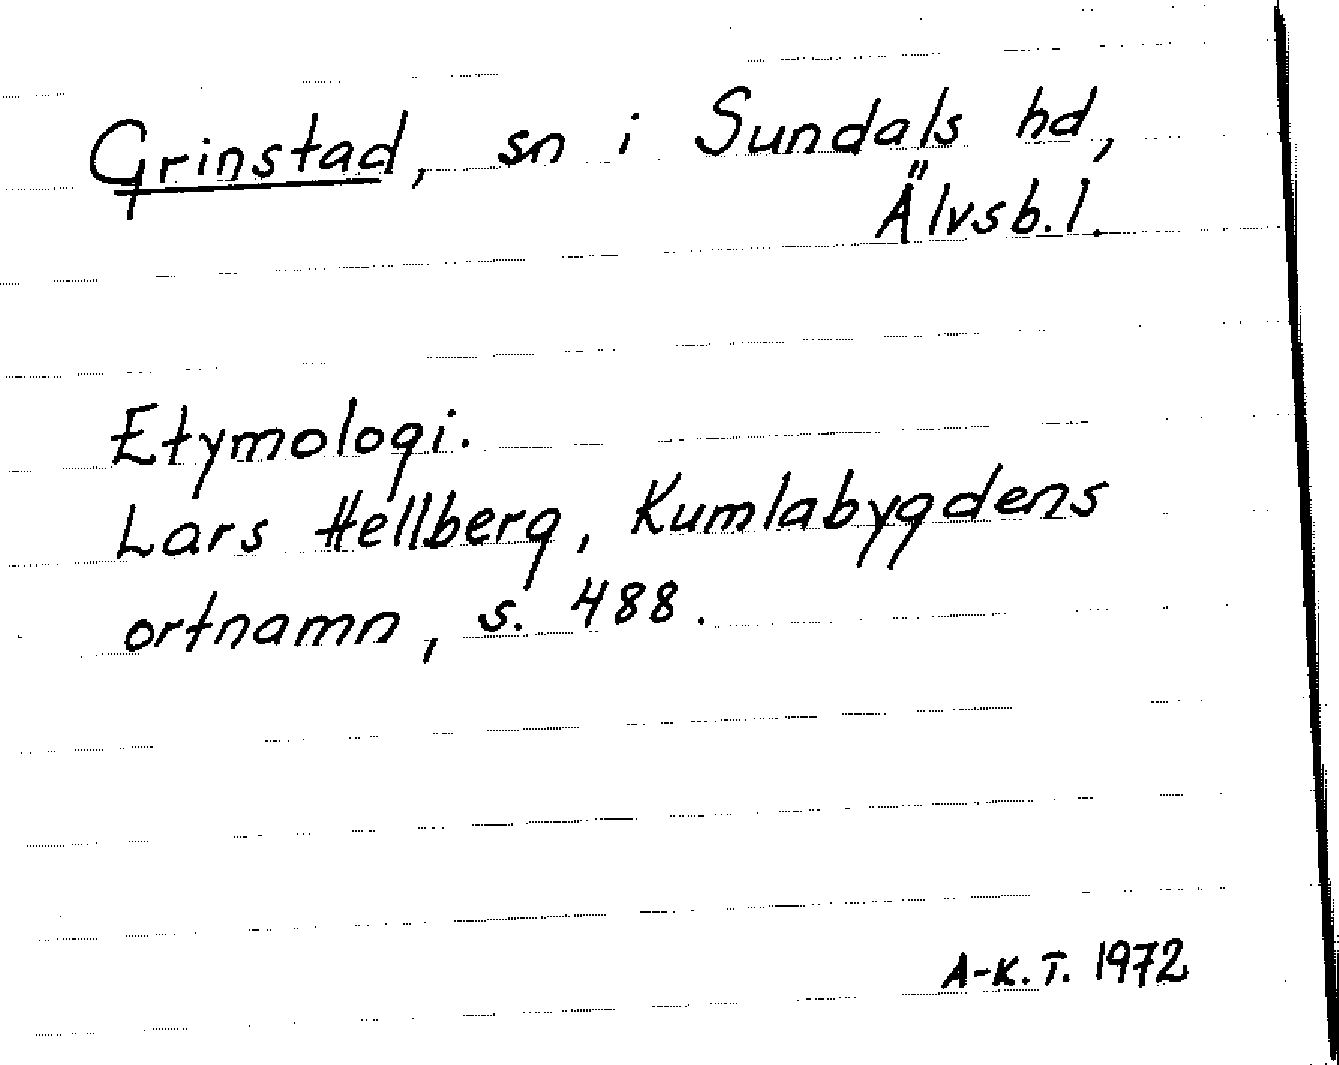 Grinstad, sn i Sundals hd,
Älvsb.l.
Etymologi.
Lars Hellberg, Kumlabygdens
ortnamn, s. 488.
A-K.T. 1972